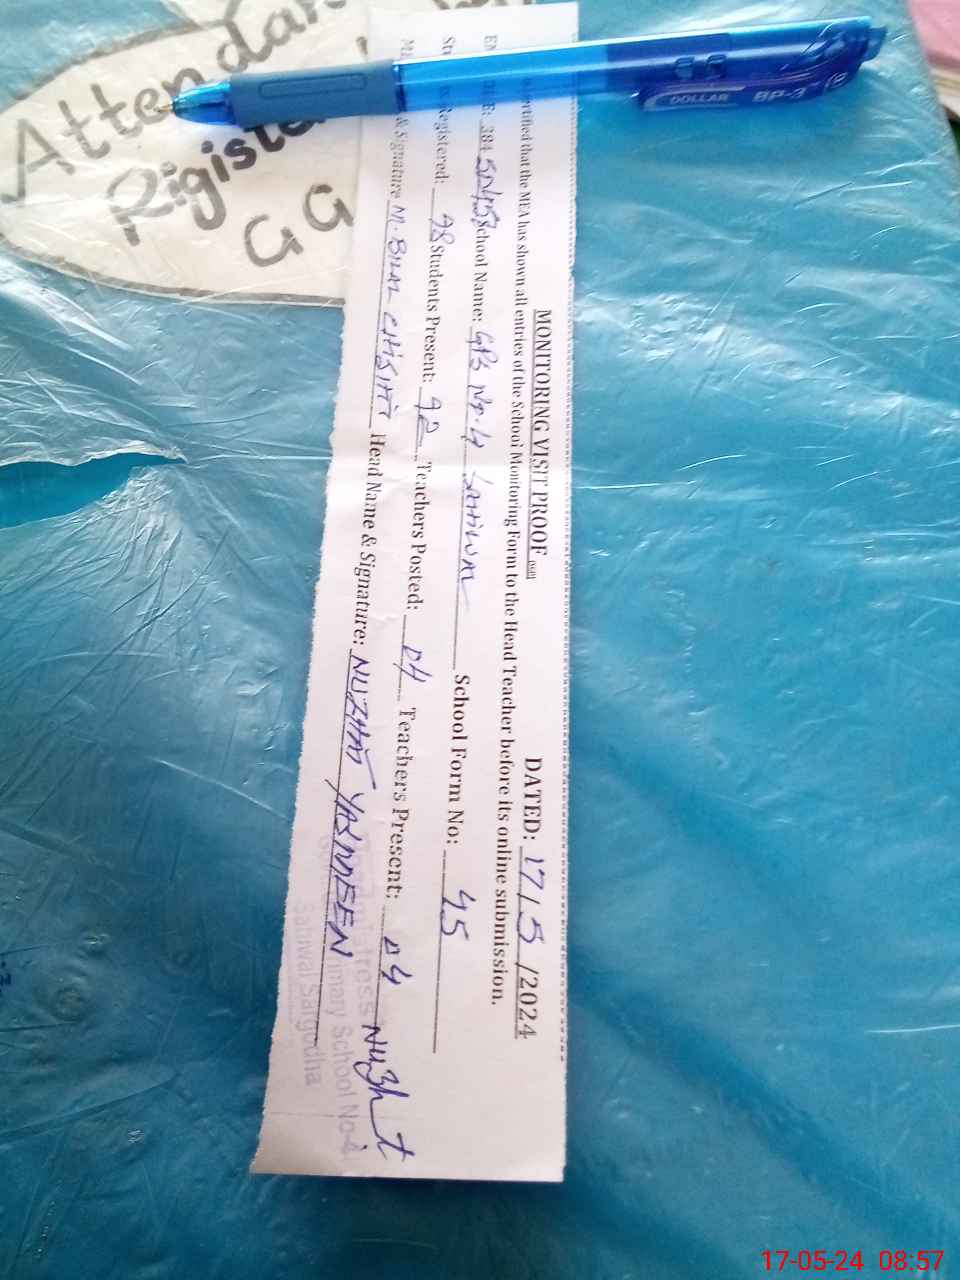 Attendan
Rigister
G G
DOLLAR BP-3
MONITORING VISIT PROOF DATED: 17/5/2024
that the MEA has shown all entries of the School Monitoring Form to the Head Teacher before its online submission.
School Name: GPS No.4 School Form No: 45
Registered: 98 Students Present: 92 Teachers Posted: 04 Teachers Present: 04
& Signature M. BILAL CHISHTI Head Name & Signature: NUZHAT YASMEEN Nuzht
Primary School No-4
Sargodha
17-05-24 08:57